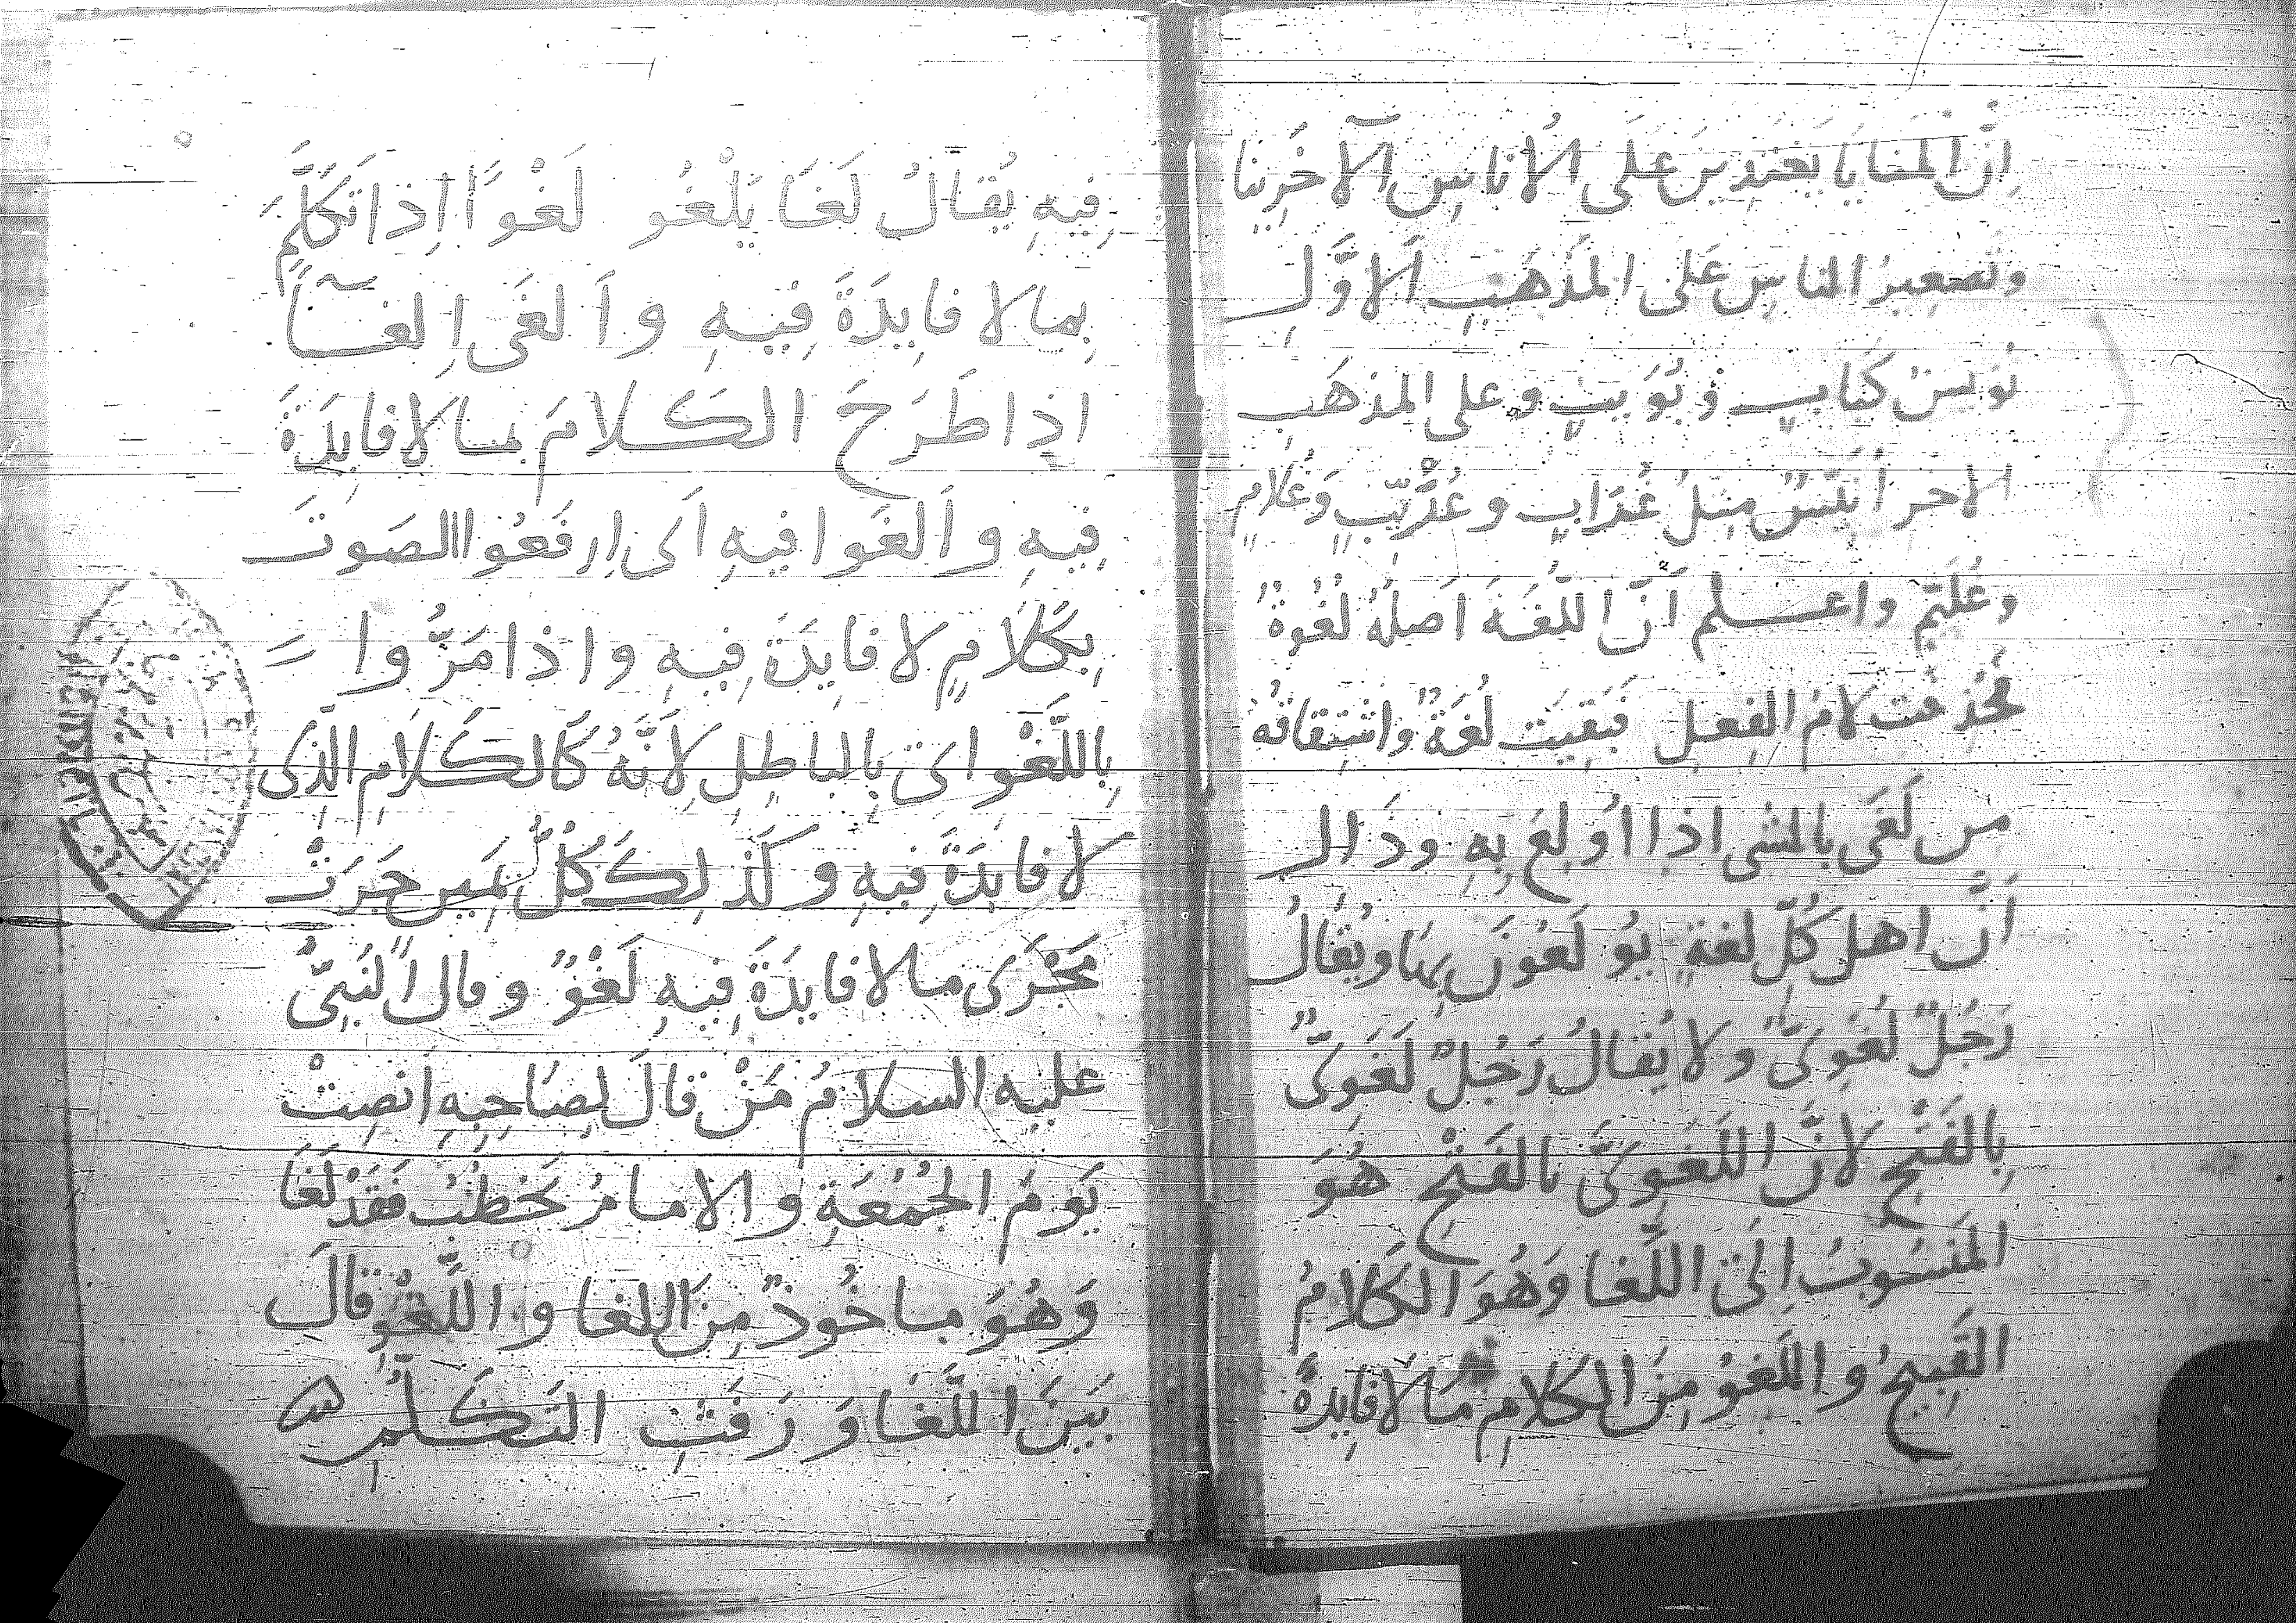 اِنَّ المَنايَا يَغتَدِينَ عَلَى الاُناسِ الآخَرِينا
وتَصغِيرُ الناسِ عَلى المَذهَبِ الاَوَّلِ
نُوَيسٌ كَبَابٍ وَبُوَيبٍ وعلى المذهَبِ
الاخر اُنَيِّسٌ مِثلُ غُرَابٍ وغُرَيِّبٍ وَغُلامٍ
وغُلَيِّمٍ واعلم اَنَّ اللُّغَةَ اَصلُهُ لُغْوَةٌ
فحُذِفت لامُ الفِعلِ فَبَقِيَت لُغَةٌ واشتِقاقُهُ
مِن لَغَى بالشى اذا اُولِعَ بِهِ وذَالِكَ
اَنَّ اهل كُلِّ لغةٍ يُولَعُونَ بِهَا ويُقَالُ
رَجُلٌ لُغَوِىٌّ ولا يُقالُ رَجُلٌ لَغَوِىٌّ
بِالفَتْحِ لانَّ اللَغَوِىَّ بالفَتْحِ هُوَ
المَنسُوبُ اِلَى اللَّغَا وَهُوَ الكَلامُ
القَبِيحُ واللَغوُ مِنَ الكلامِ مَا لا فايِدةَ
فِيهِ يُقَالُ لَغَا يَلْغُو لَغْوًا اِذَا تَكَلَّمَ
بِما لا فايِدَةَ فِيهِ واَلغَى اِلغآءً
اذا طَرَحَ الكلامَ بما لا فايِدَةَ
فِيهِ واَلغَوا فيهِ اَى اِرفَعُوا الصَوتَ
بِكَلامٍ لا فايِدَةَ فِيهِ واذا مَرُّوا
بِاللَّغْوِ اى بالباطِلِ لاَنَّهُ كَالكَلامِ الَّذِى
لا فايِدَةَ فِيهِ وكَذلِكَ كُلُّ يَمِينٍ جَرَتْ
مَجْرَى ما لا فايِدَةَ فِيهِ لَغْوٌ وقال النَبِىُّ
عليه السلامُ مَنْ قالَ لِصَاحِبِهِ اَنصِتْ
يَومَ الجُمُعَةِ والامامُ يَخطُبُ فَقَدْ لَغَا
وَهُوَ ماخُوذٌ مِنَ اللغا واللَّغْوِ قالَ
بَينَ اللَّغَا وَرَفَثِ التَكَلُّمِ